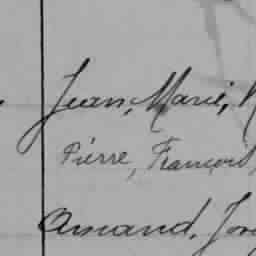 Jean, Marie,
Pierre, François,
Amand, Jos